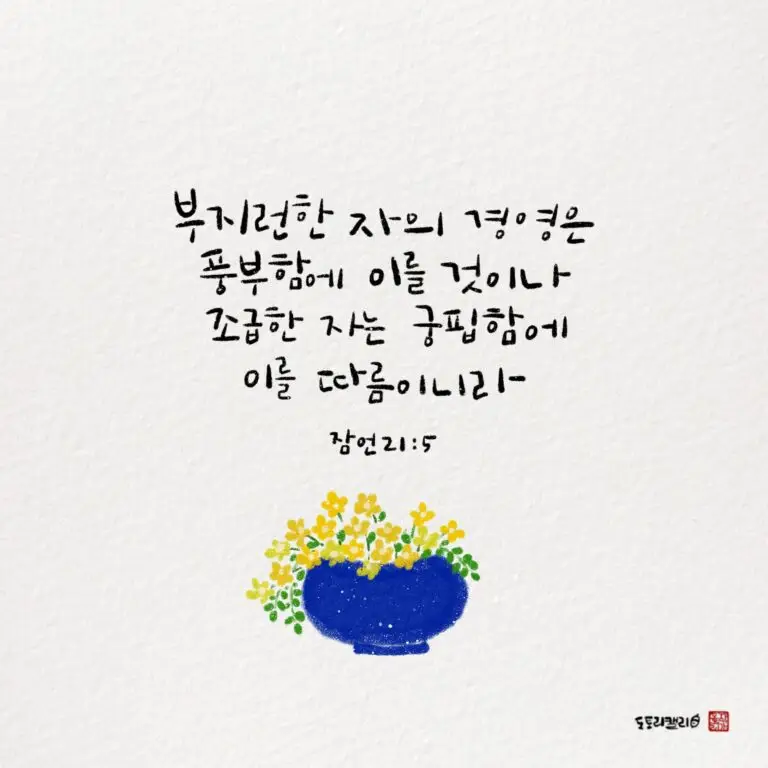 부지런한 자의 경영은
풍부함에 이를 것이나
조급한 자는 궁핍함에
이를 따름이니라
잠언 21:5
도토리캘리